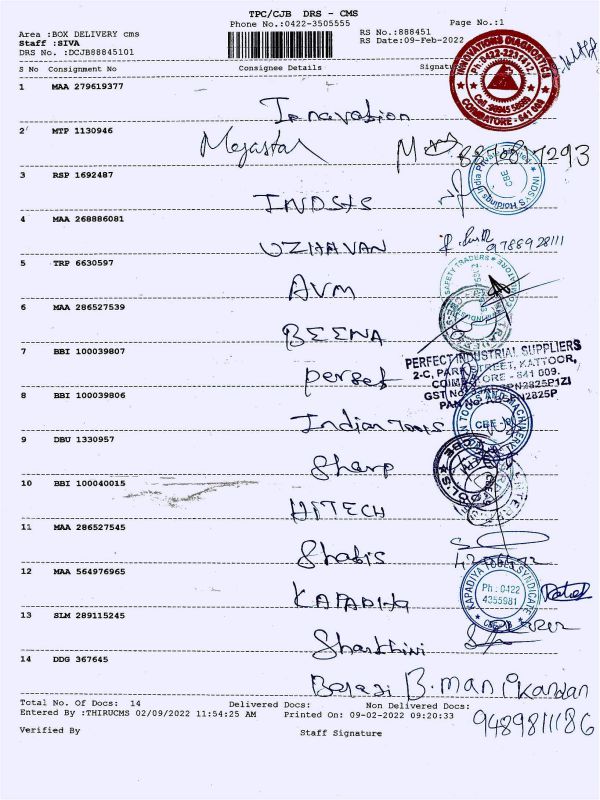 TPC/CJB DRS - CMS
Phone No.:0422-3505555 Page No.:1
Area :BOX DELIVERY cms RS No.:888451
Staff :SIVA RS Date:09-Feb-2022
DRS No. :DCJB88845101
S No Consignment No Consignee Details Signatu
1 MAA 279619377
Innovation
INNOVATIONS DIAGNOSTICS
COIMBATORE - 641
2 MTP 1130946
Megastar
3 RSP 1692487
INDSYS
INDSYS Holdings India Private
CBE
4 MAA 268886081
UZHAVAN
9788928111
5 TRP 6630597
AVM
SAFETY TRADERS
6 MAA 286527539
BEENA
7 BBI 100039807
Perfect
PERFECT INDUSTRIAL SUPPLIERS
2-C, PARK STREET, KATTOOR,
COIMBATORE - 641 009.
GST No
PAN No
8 BBI 100039806
Indian Tools
TOOLS AND MACHINERY
CBE
9 DBU 1330957
Sharp
10 BBI 100040015
HITECH
11 MAA 286527545
Shabis
12 MAA 564976965
KAPADIYA
KAPADIYA TOOLS SYNDICATE
Ph : 0422
4355981
13 SLM 289115245
Sharthini
14 DDG 367645
Balaji B. Manikandan
Total No. Of Docs: 14 Delivered Docs: Non Delivered Docs:
Entered By :THIRUCMS 02/09/2022 11:54:25 AM Printed On: 09-02-2022 09:20:33
9489811186
Verified By Staff Signature